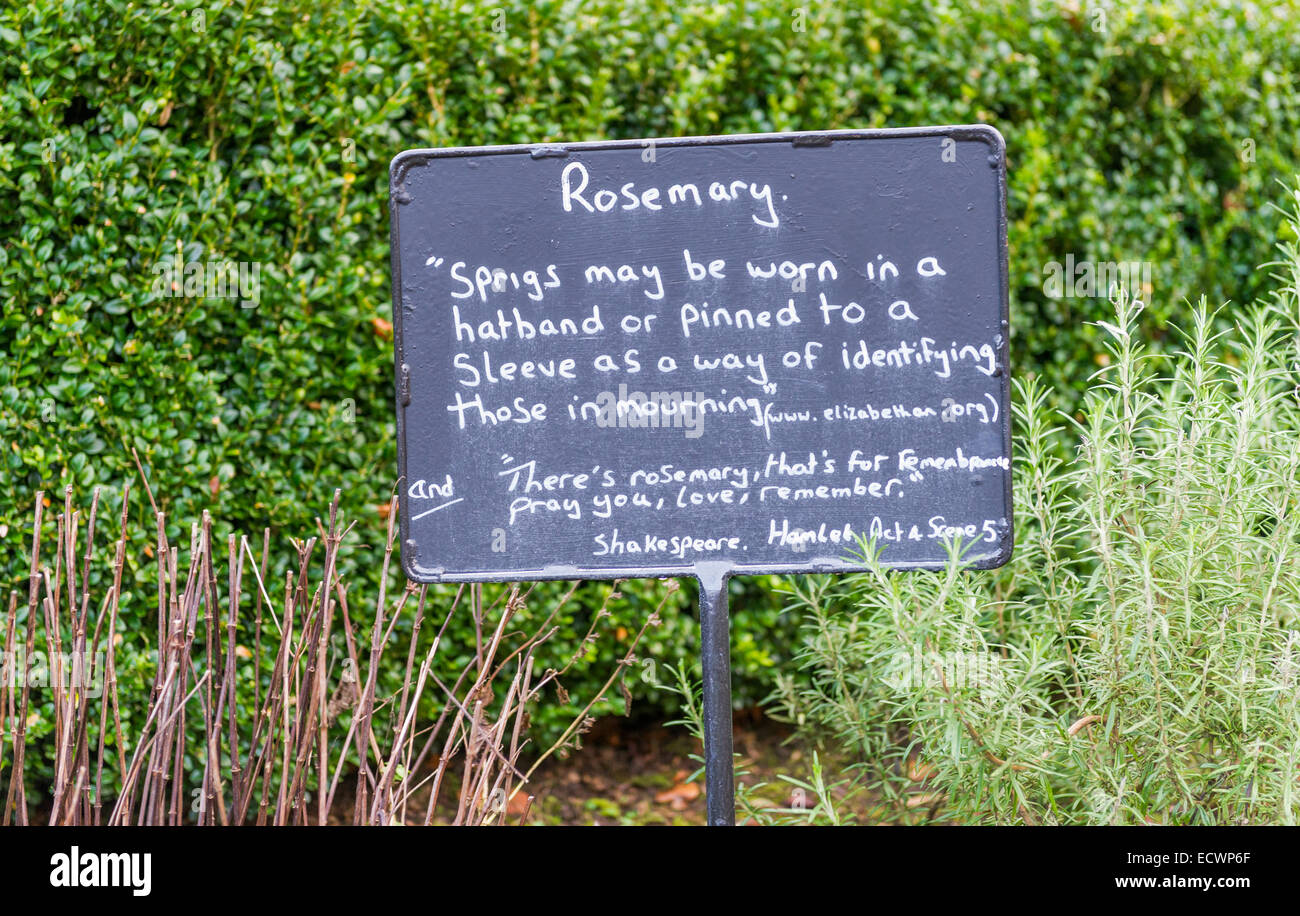 Rosemary.
"Sprigs may be worn in a
hatband or pinned to a
Sleeve as a way of identifying"
those in mourning" (www.elizabethan.org)
and "There's rosemary, that's for remembrance
pray you, love, remember."
Shakespeare. Hamlet Act 4 Scene 5
alamy
Image ID: ECWP6F
www.alamy.com